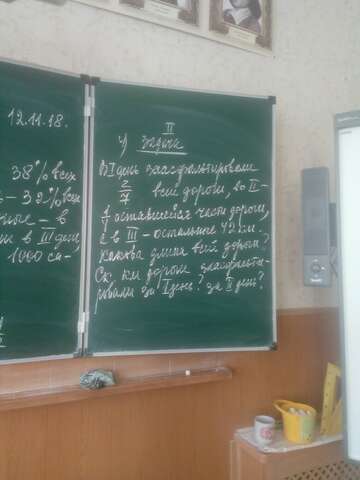 12.11.18.
38% всех
- 32% всех
ные - в
в III день,
1000 са-
II
4) Задача
В I день заасфальтировали
2/7 всей дороги, во II -
оставшейся части дороги,
а в III - остальные 42 км.
Какова длина всей дороги?
Ск. км дороги заасфальти-
ровали за I день? за II день?